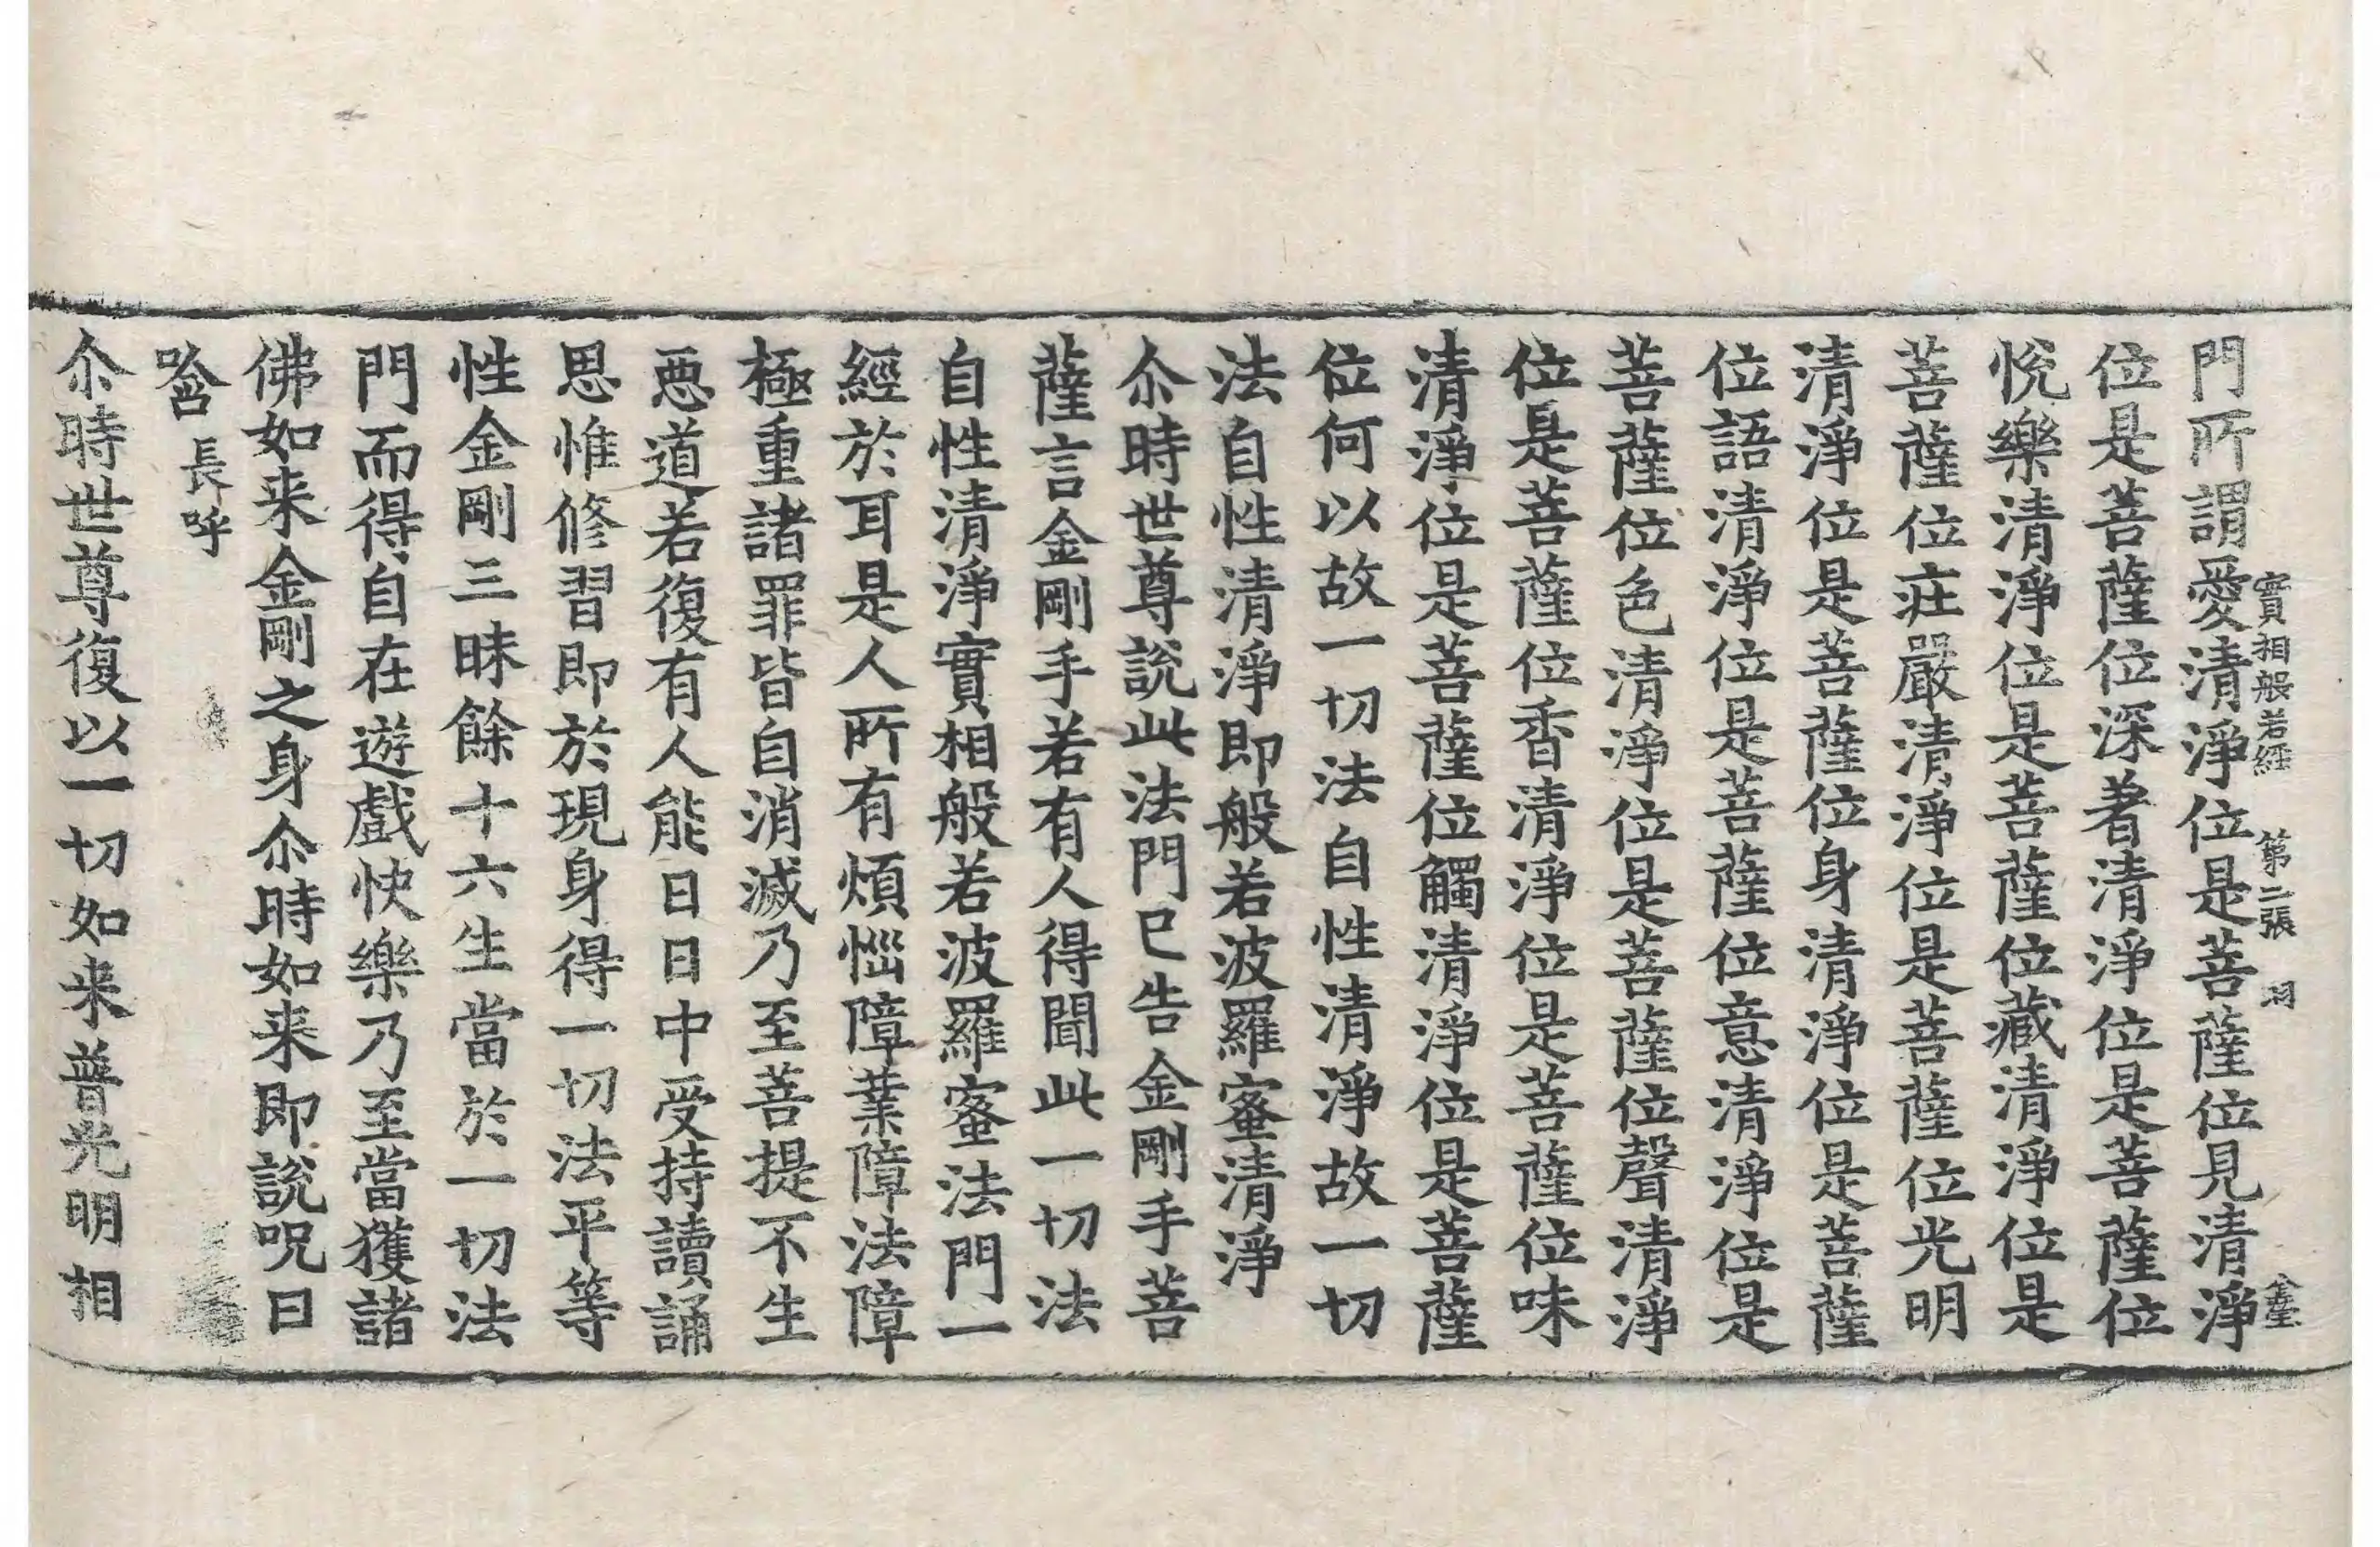 門所謂愛清淨位是菩薩位見清淨
實相般若經 第二張 羽
位是菩薩位深著清淨位是菩薩位
悅樂清淨位是菩薩位藏清淨位是
菩薩位庄嚴清淨位是菩薩位光明
清淨位是菩薩位身清淨位是菩薩
位語清淨位是菩薩位意清淨位是
菩薩位色清淨位是菩薩位聲清淨
位是菩薩位香清淨位是菩薩位味
清淨位是菩薩位觸清淨位是菩薩
位何以故一切法自性清淨故一切
法自性清淨即般若波羅蜜清淨
尒時世尊說此法門已告金剛手菩
薩言金剛手若有人得聞此一切法
自性清淨實相般若波羅蜜法門一
經於耳是人所有煩惱障業障法障
極重諸罪皆自消滅乃至菩提不生
惡道若復有人能日日中受持讀誦
思惟修習即於現身得一切法平等
性金剛三昧餘十六生當於一切法
門而得自在遊戲快樂乃至當獲諸
佛如来金剛之身尒時如来即說呪曰
唅 長呼
尒時世尊復以一切如来普光明相